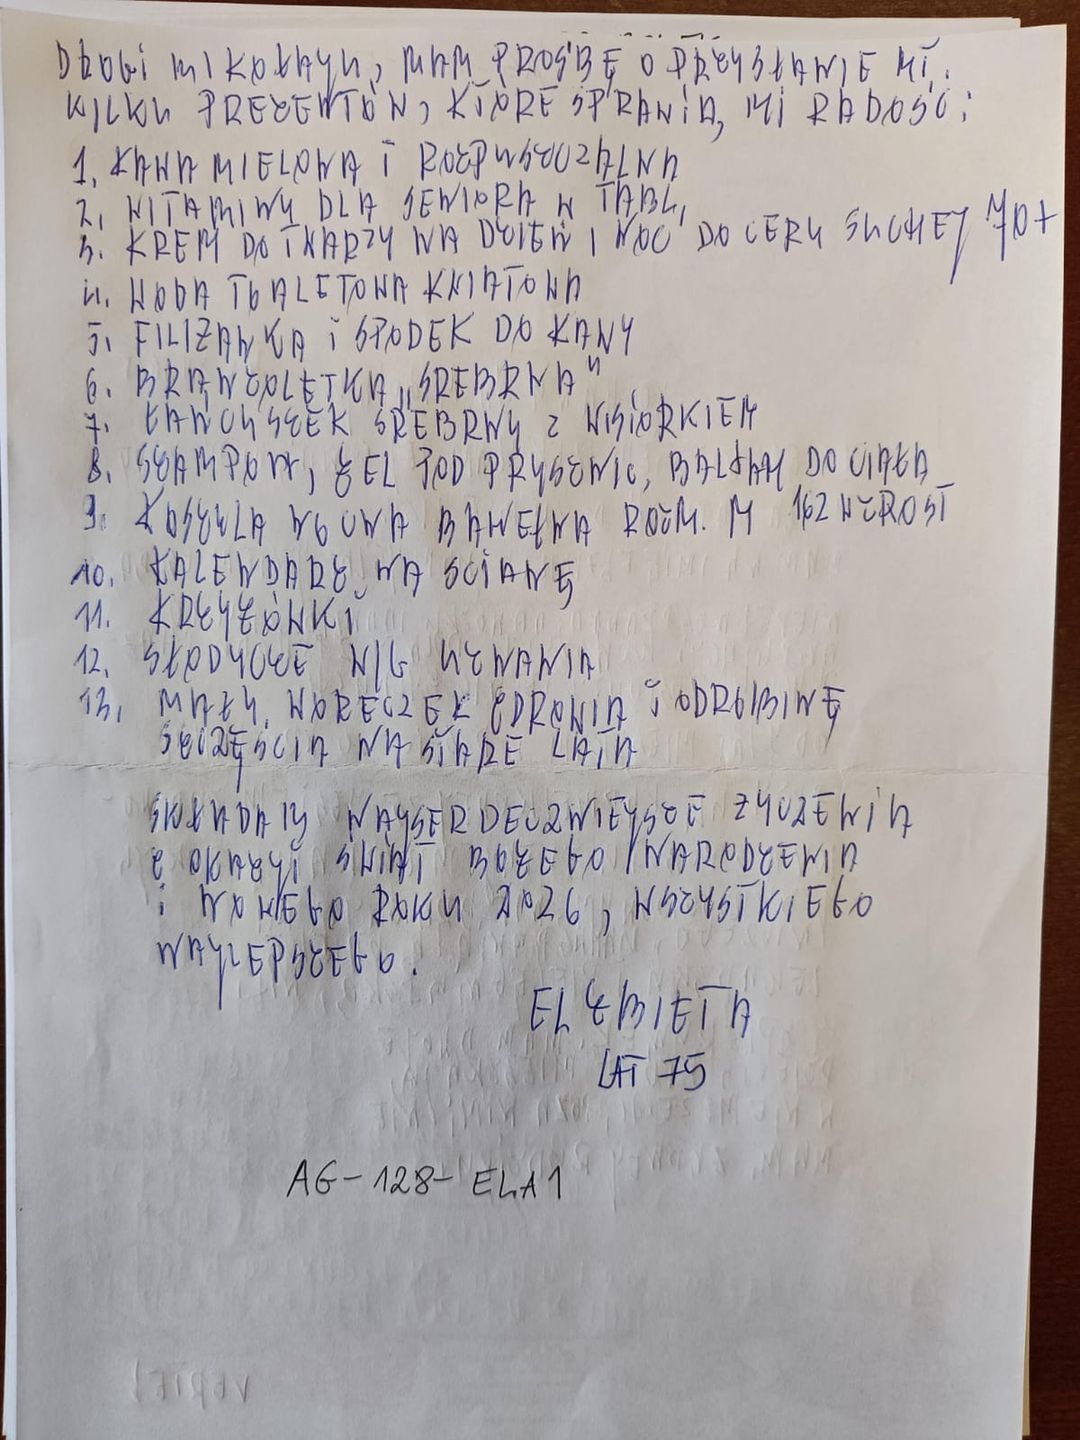 DROGI MIKOŁAJU, MAM PROŚBĘ O PRZYSŁANIE MI
KILKU PREZENTÓW, KTÓRE SPRAWIĄ, MI RADOŚĆ:
1. KAWA MIELONA I ROZPUSZCZALNA
2. WITAMINY DLA SENIORA W TABL,
3. KREM DO TWARZY NA DZIEŃ I NOC DO CERY SUCHEJ 70+
4. WODA TOALETOWA KWIATOWA
5. FILIŻANKA I SPODEK DO KAWY
6. BRANZOLETKA „SREBRNA"
7. ŁAŃCUSZEK SREBRNY Z WISIORKIEM
8. SZAMPON, ŻEL POD PRYSZNIC, BALSAM DO CIAŁA
9. KOSZULA NOCNA BAWEŁNA ROZM. M 162 WZROST
10. KALENDARZ NA ŚCIANĘ
11. KRZYŻÓWKI
12. SŁODYCZE W/G UZNANIA
13. MAŁY WORECZEK ZDROWIA I ODROBINĘ
SZCZĘŚCIA NA STARE LATA
SKŁADAM NAJSERDECZNIEJSZE ŻYCZENIA
Z OKAZJI ŚWIĄT BOŻEGO NARODZENIA
I NOWEGO ROKU 2026, WSZYSTKIEGO
NAJLEPSZEGO.
ELŻBIETA
LAT 75
AG-128-ELA1